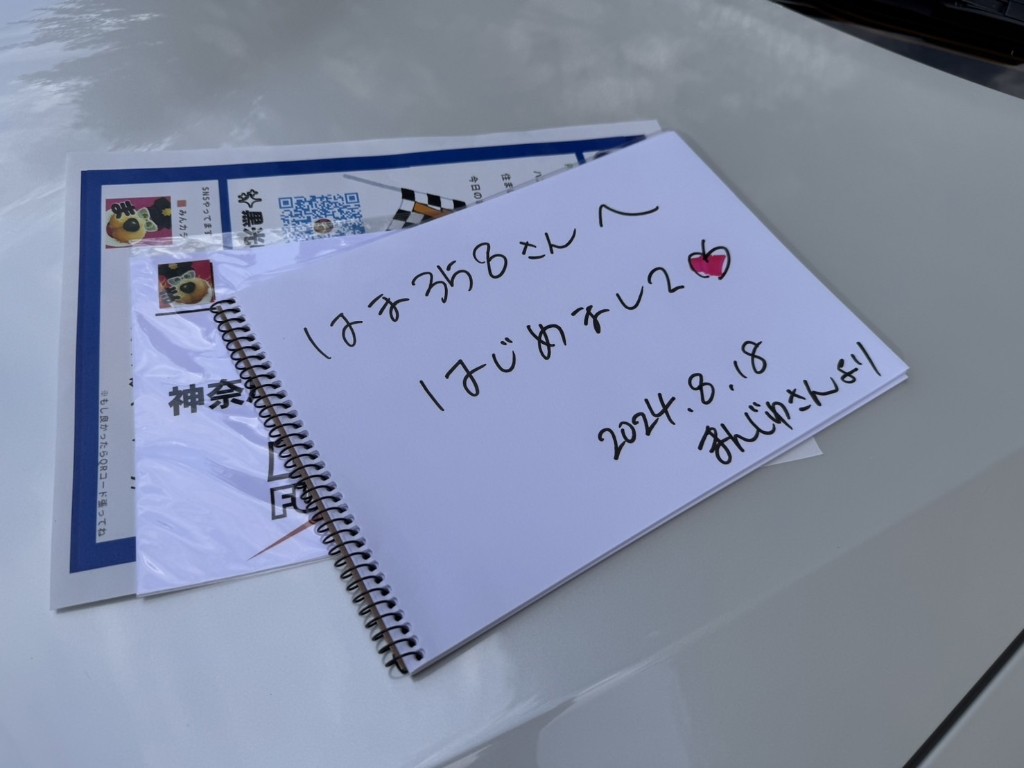 はま358さんへ
はじめまして
2024.8.18
まんじゅさんより
SNSやってます
みんカラ
ま
今日の
神奈
※もし良かったらQRコード撮ってね